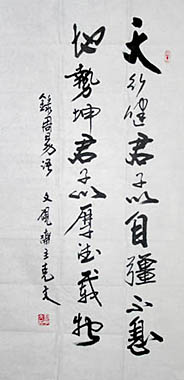 天行健君子以自彊不息
地勢坤君子以厚德載物
錄周易語
文寬齋主克文